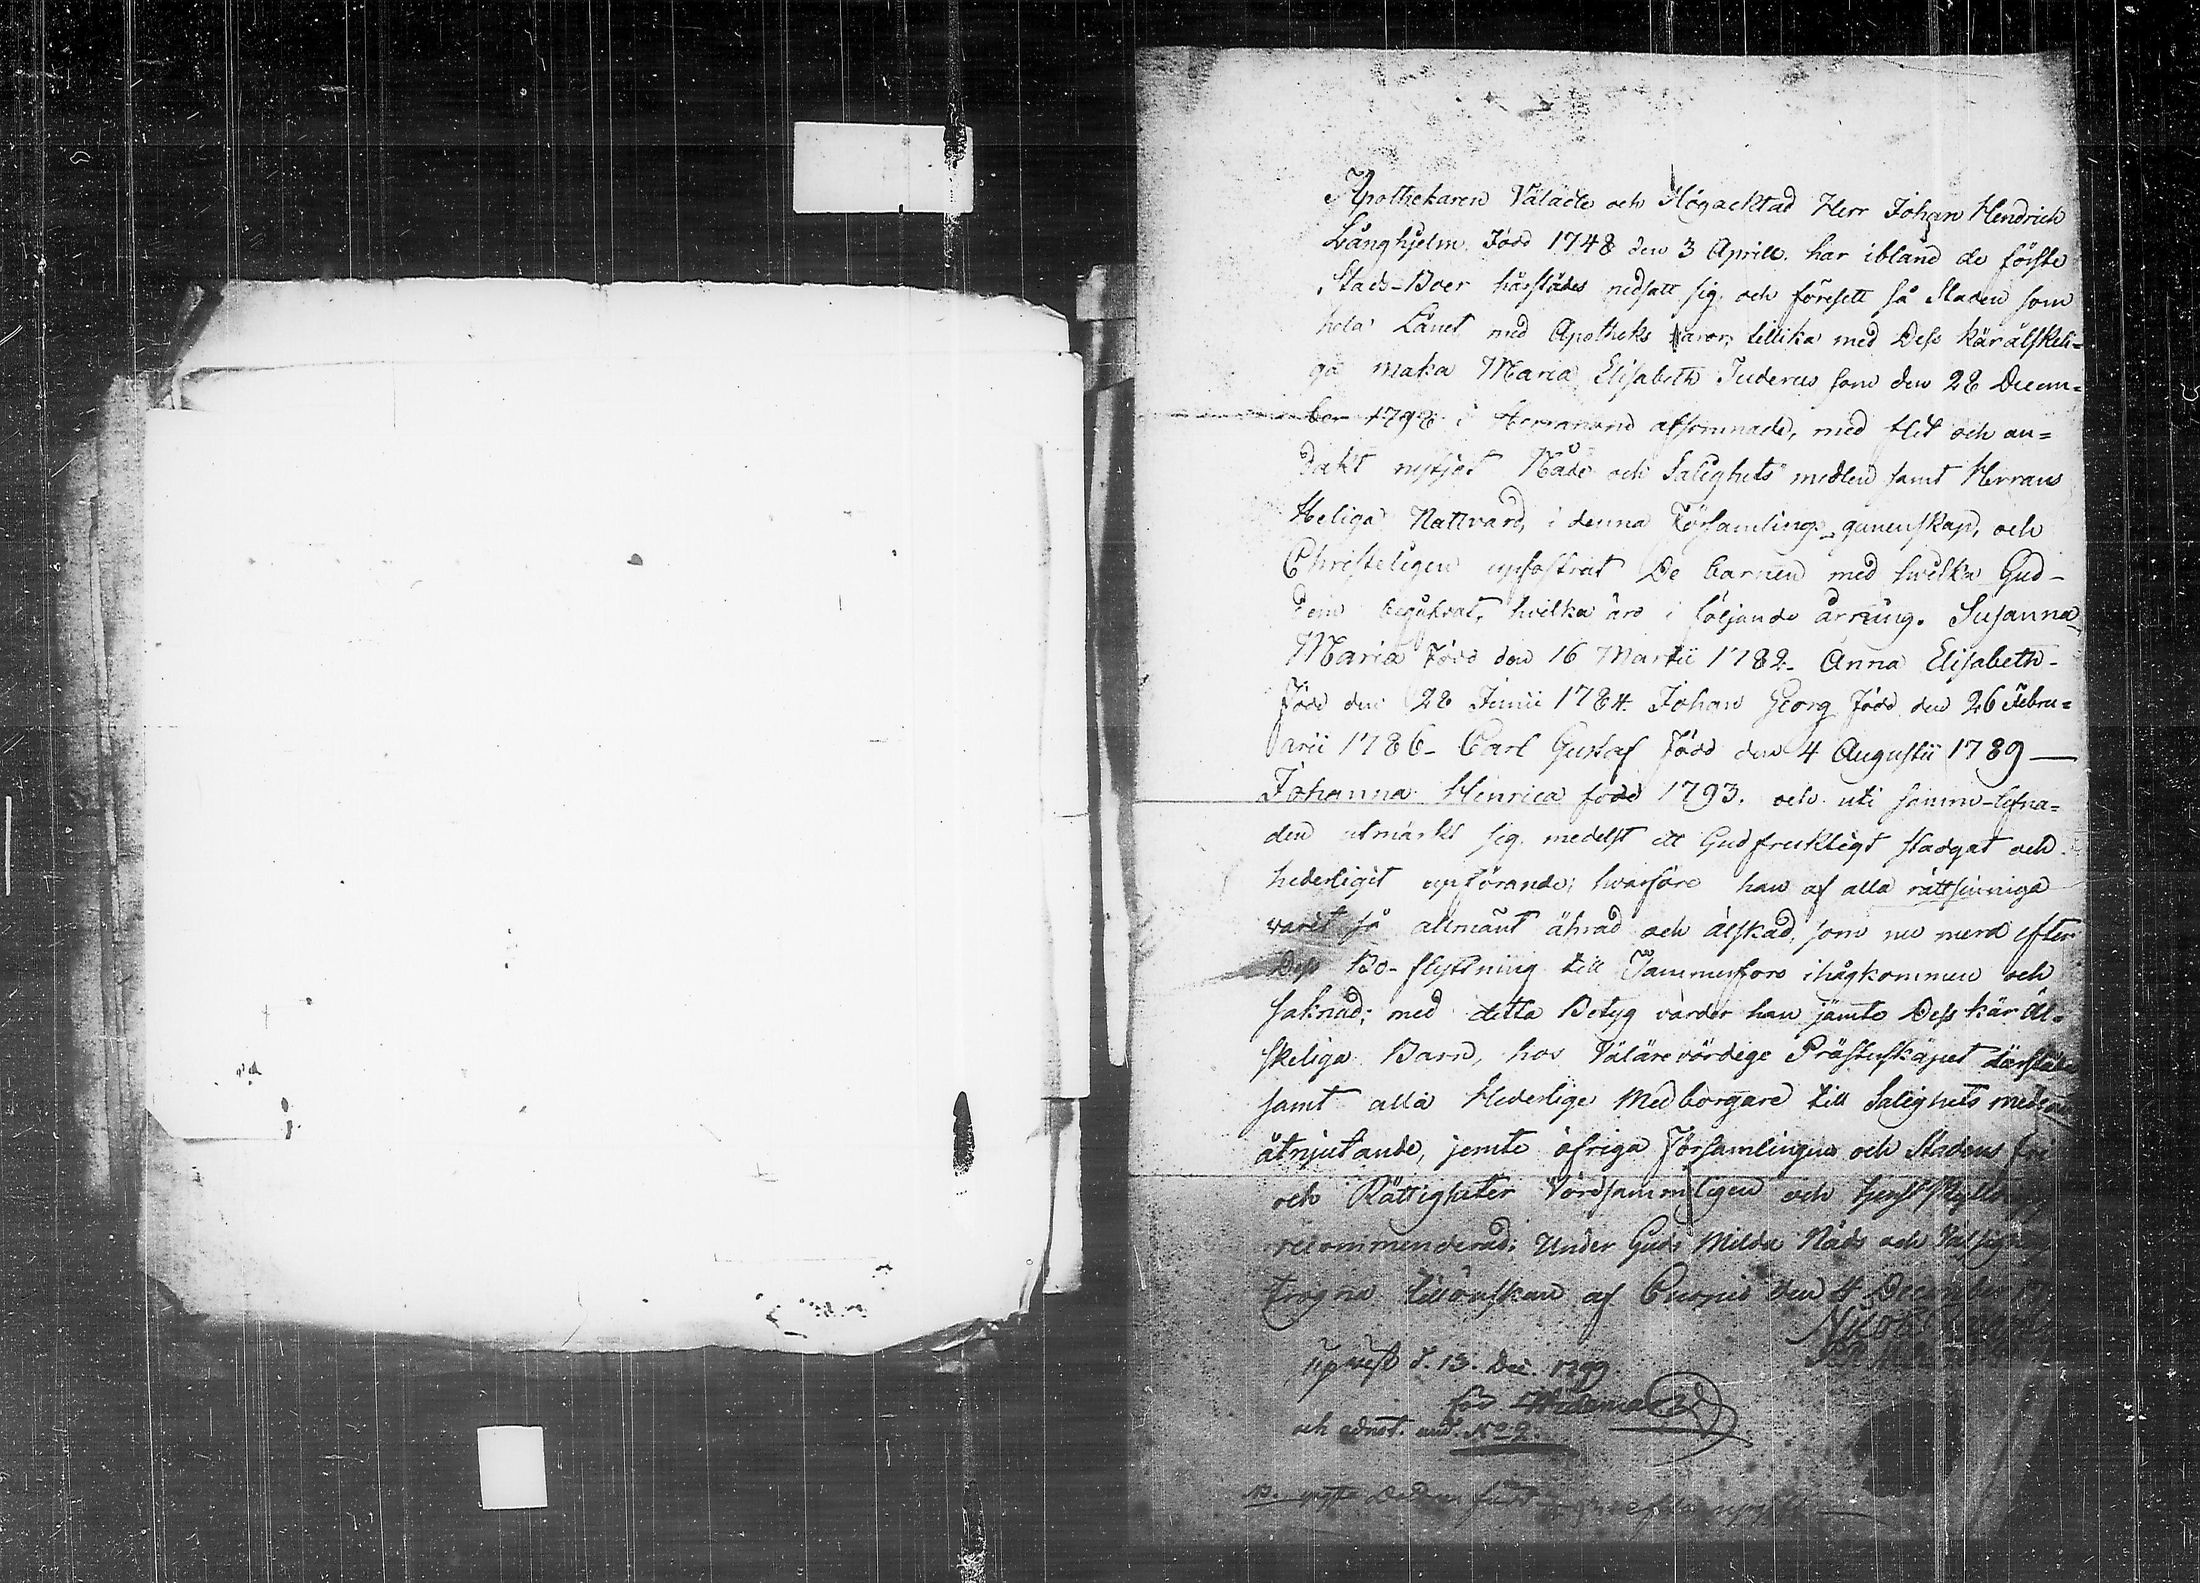 Apothekaren Välacte och Högacktad Herr Johan Hendrich
Långhjelm Född 1748 den 3 Aprill. har ibland de förste
Stads-Boer härstädes nedsatt sig och försett så Staden som
hela Länet med Apotheks varor, tillika med Dess kärälskeli=
ga maka Maria Elisabeth Juderus som den 28 Decem=
ber 1798 i Herranom afsomnade, med flit och an=
dakt nytjat Nåde och Salighets medlen samt Herrans
Heliga Nattvard, i denna Församlings gemenskap, och
Christeligen upfostrat De barnen med hvilka Gud
dem begåfvat, hvilka äro i följande årrung. Susanna
Maria Född den 16 Martii 1782- Anna Elisabeth-
Född den 28 Junii 1784. Johan Georg Född den 26 Febru=
arii 1786- Carl Gustaf Född den 4 Augustii 1789 —
Johanna Henrica född 1793. och uti samm-lefna=
den utmärkt sig medelst ett Gudfrucktigt stadgat och
hederligit upförande; hvarföre han af alla rättsinniga
varit så allmänt ährad och älskad, som nu mera efter
Dess Bo-flyttning till Tammerfors ihågkommen och
saknad; med detta Betyg varder han jämte Dess kär äl=
skeliga Barn, hos Välärevördige Prästerskapet därstädes
samt alla Hederlige Medborgare till Salighets medlens
åtnjutande, jemte öfriga Församlingens och Stadens fri
och Rättigheter Vördsammeligen och
recommenderad: Under Guds Milda Nåds och
trogna tillönskan af Cuopio den 4 December
upvist d. 13. Dec. 1799.
och adnot. und. No 2.
NB.